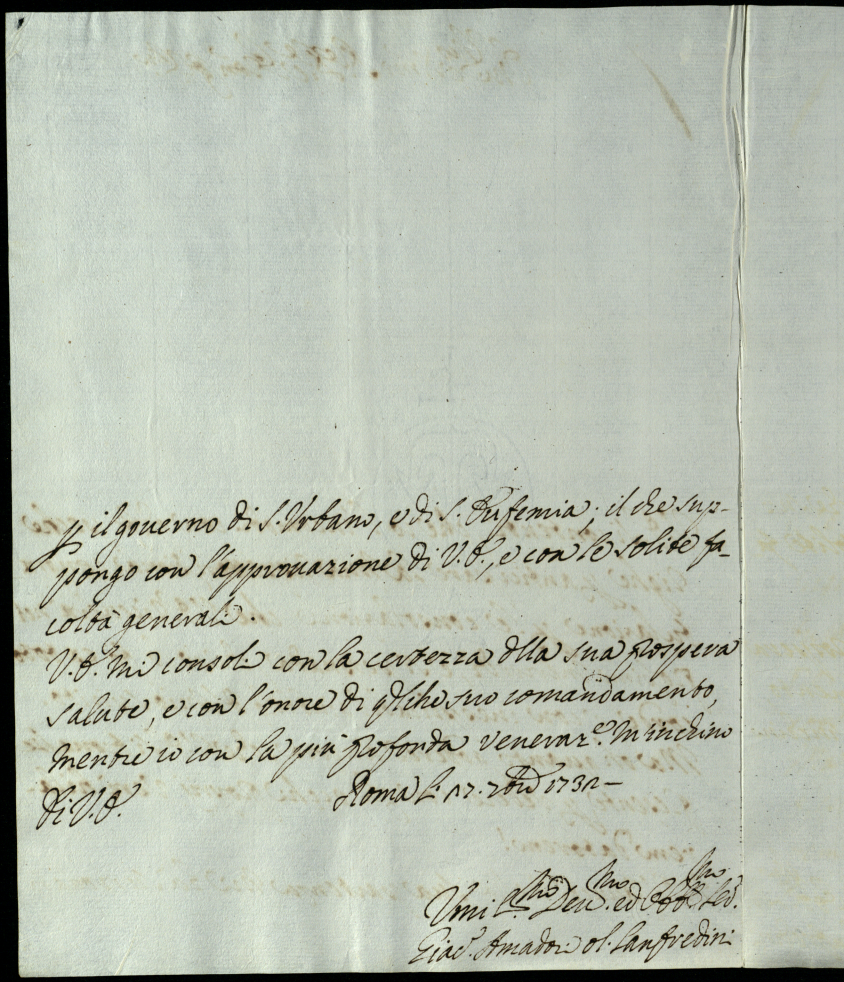 p il governo di S. Vrbano, e di S. Eufemia; il che sup-
pongo con l'approuazione di V.E., e con le solite fa-
coltà generali.
V.E. mi consoli con la certezza dlla sua prospera
salute, e con l'onore di qlche suo comandamento,
mentre io con la più profonda veneraz.e m'inchino
Di V.E. Roma li 17. 7bre 1731 –
Vmil.mo Deu.mo ed Obb.mo Ser.
Giac.o Amadori ol. Lanfredini